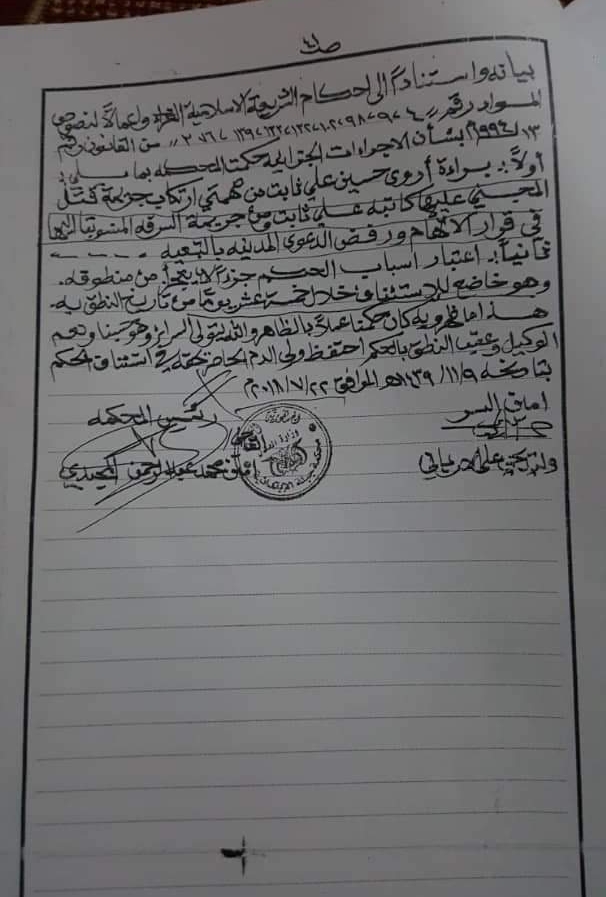 بيانه واستناداً الى احكام الشريعة الاسلامية الغراء واعمالاً لنصوص
المواد رقم
١٣ ١٩٩٤م بشأن الاجراءات الجزائيه حكمت المحكمه بما يلي :
أولاً : براءة أروى حسين علي ثابت من تهمتي ارتكاب جريمة قتل
المجني عليها كاتبه علي ثابت ومن جريمة السرقه المنسوبتا اليها
في قرار الاتهام ورفض الدعوى المدنيه بالتبعيه
ثانياً : اعتبار اسباب الحكم جزءً لا يتجزأ من منطوقه.
وهو خاضع للاستئناف خلال خمسة عشر يوماً من تاريخ النطق به.
هذا ما ظهر وبه كان حكمنا عملاً بالظاهر والله يتولى السرائر وهو حسبنا ونعم
الوكيل وعقب النطق بالحكم احتفظ ولي الدم الحاضر بحقه في استئناف الحكم
بتاريخه ٩/١١/١٤٣٩هـ الموافق ٢٢/٧/٢٠١٨م
امين السر
رئيس المحكمه
القاضي
محمد عبدالرحمن